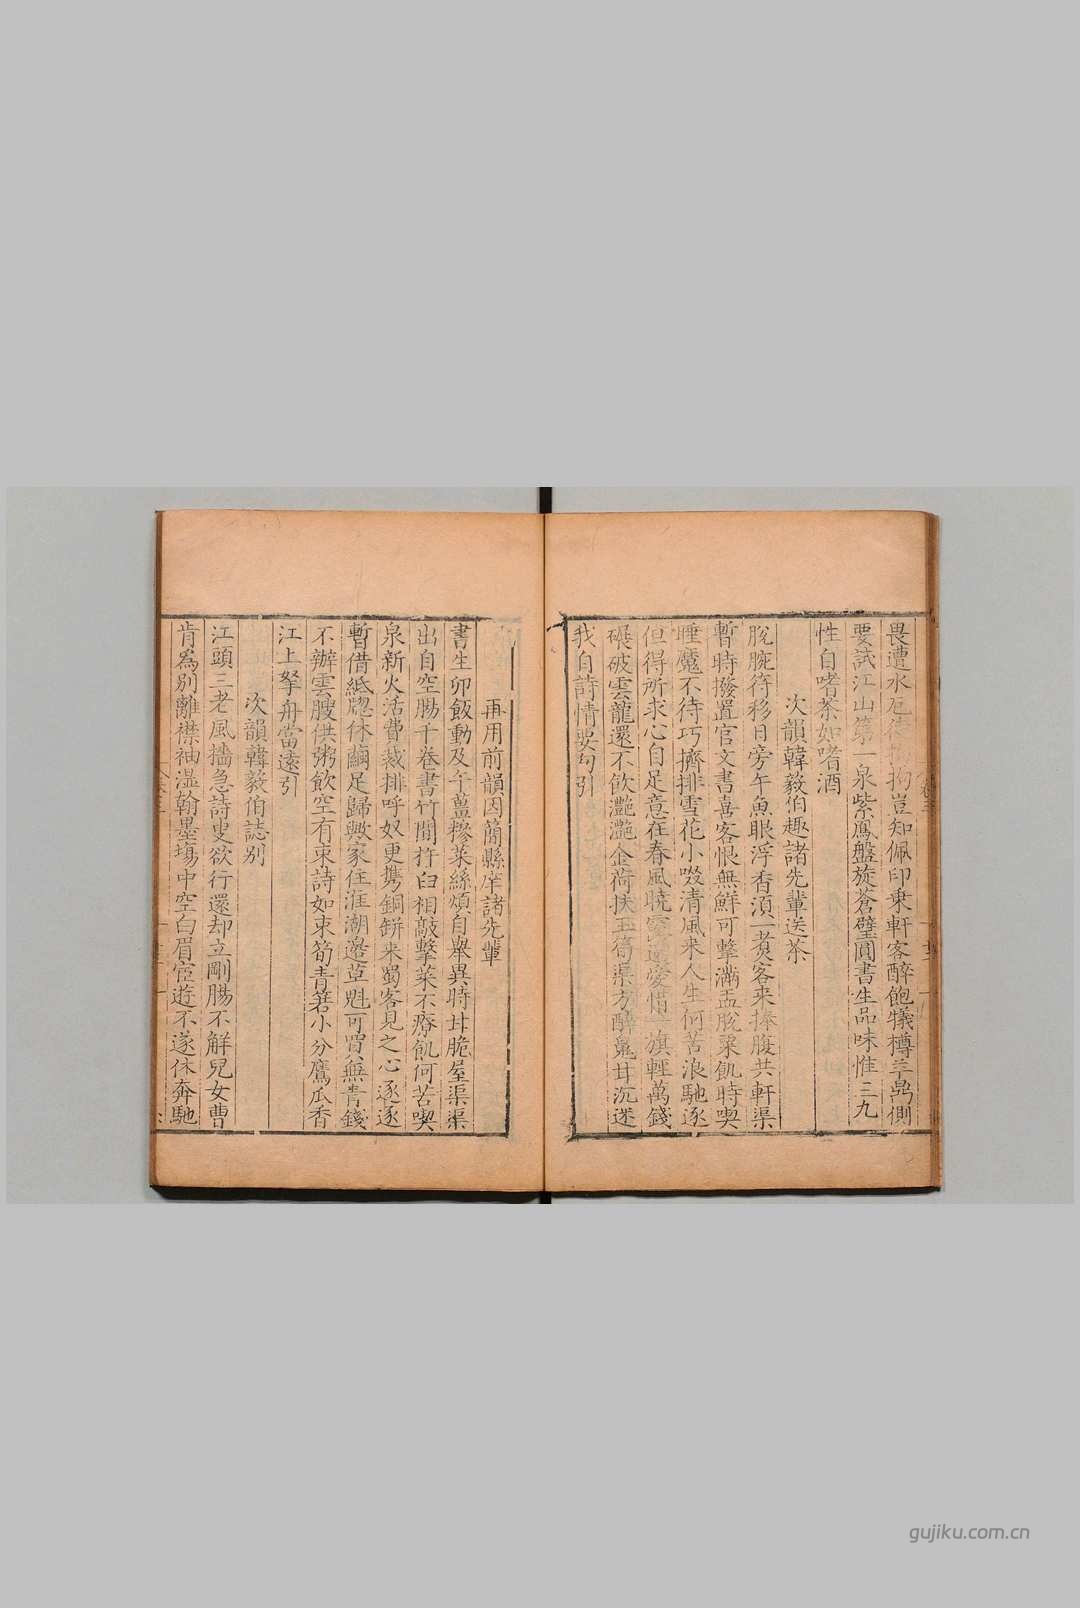 畏遭水厄豈知佩印乗軒客醉飽犧樽羊鼎側
要試江山第一泉紫鳳盤旋蒼壁圓書生品味惟三九
性自嗜茶如嗜酒
次韻韓毅伯趣諸先輩送茶
脫腕符移日旁午魚眼浮香湏一煑客来捧腹共軒渠
暫時撥置官文書喜客恨無鮮可擊滿盂脫粟飢時喫
睡魔不待巧擠排雪花小啜清風来人生何苦浪馳逐
但得所求心自足意在春風暁愛憎一旗輕萬錢
碾破雲龍還不飲灔灔金荷扶玉筍渠方醉鬼甘沉迷
我自詩情要勾引
再用前韻因簡縣庠諸先輩
書生卯飯動及午薑糝菜絲頻自舉異時甘脆屋渠渠
出自空腸千巻書竹間杵臼相敲擊菜不療飢何苦喫
泉新火活費裁排呼奴更携銅缾来蜀客見之心逐逐
暫借紙牕休繭足歸歟家住淮潮邉草魁可買無青錢
不辦雲腴供粥飲空有束詩如束筍青箬小分鷹瓜香
江上拏舟當遠引
次韻韓毅伯誌别
江頭三老風檣急詩叟欲行還却立剛腸不解兒女曹
肯為别離襟袖濕翰墨塲中空白眉宦遊不遂休奔馳
gujiku.com.cn